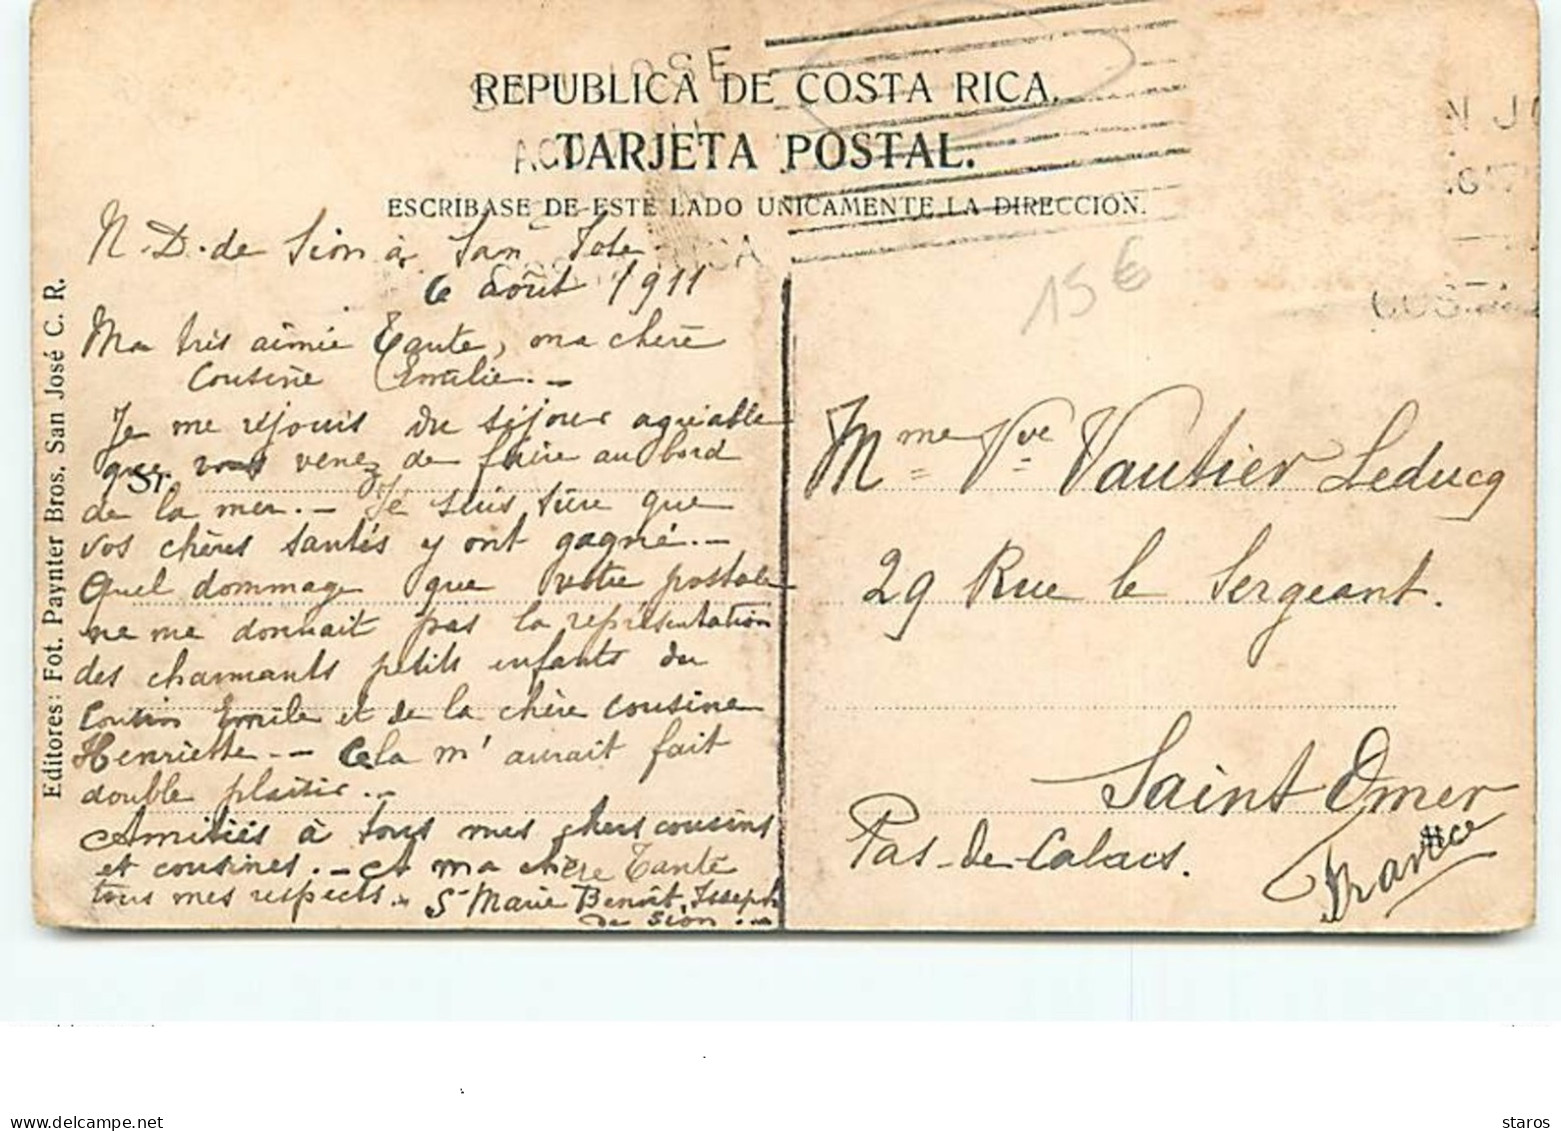 REPUBLICA DE COSTA RICA.
TARJETA POSTAL.
ESCRIBASE DE ESTE LADO UNICAMENTE LA DIRECCION.
Editores: Fot. Paynter Bros. San José C. R.
N. D. de Sion à San José
6 Août 1911
Ma très aimée Tante, ma chère
Cousine Emilie. –
Je me réjouis du séjour agréable
que vous venez de faire au bord
Sr.
de la mer. – Je suis sûre que
vos chères santés y ont gagné. –
Quel dommage que votre postale
ne me donnait pas la représentation
des charmants petits enfants du
Cousin Emile et de la chère cousine
Henriette. – Cela m'aurait fait
double plaisir. –
Amitiés à tous mes chers cousins
et cousines. – et ma chère Tante
tous mes respects. Sr Marie Benoît Joseph
de Sion. –
15 €
Mme Vve Vautier Leducq
29 Rue le Sergeant.
Saint Omer
Pas-de-Calais.
France
www.delcampe.net
staros